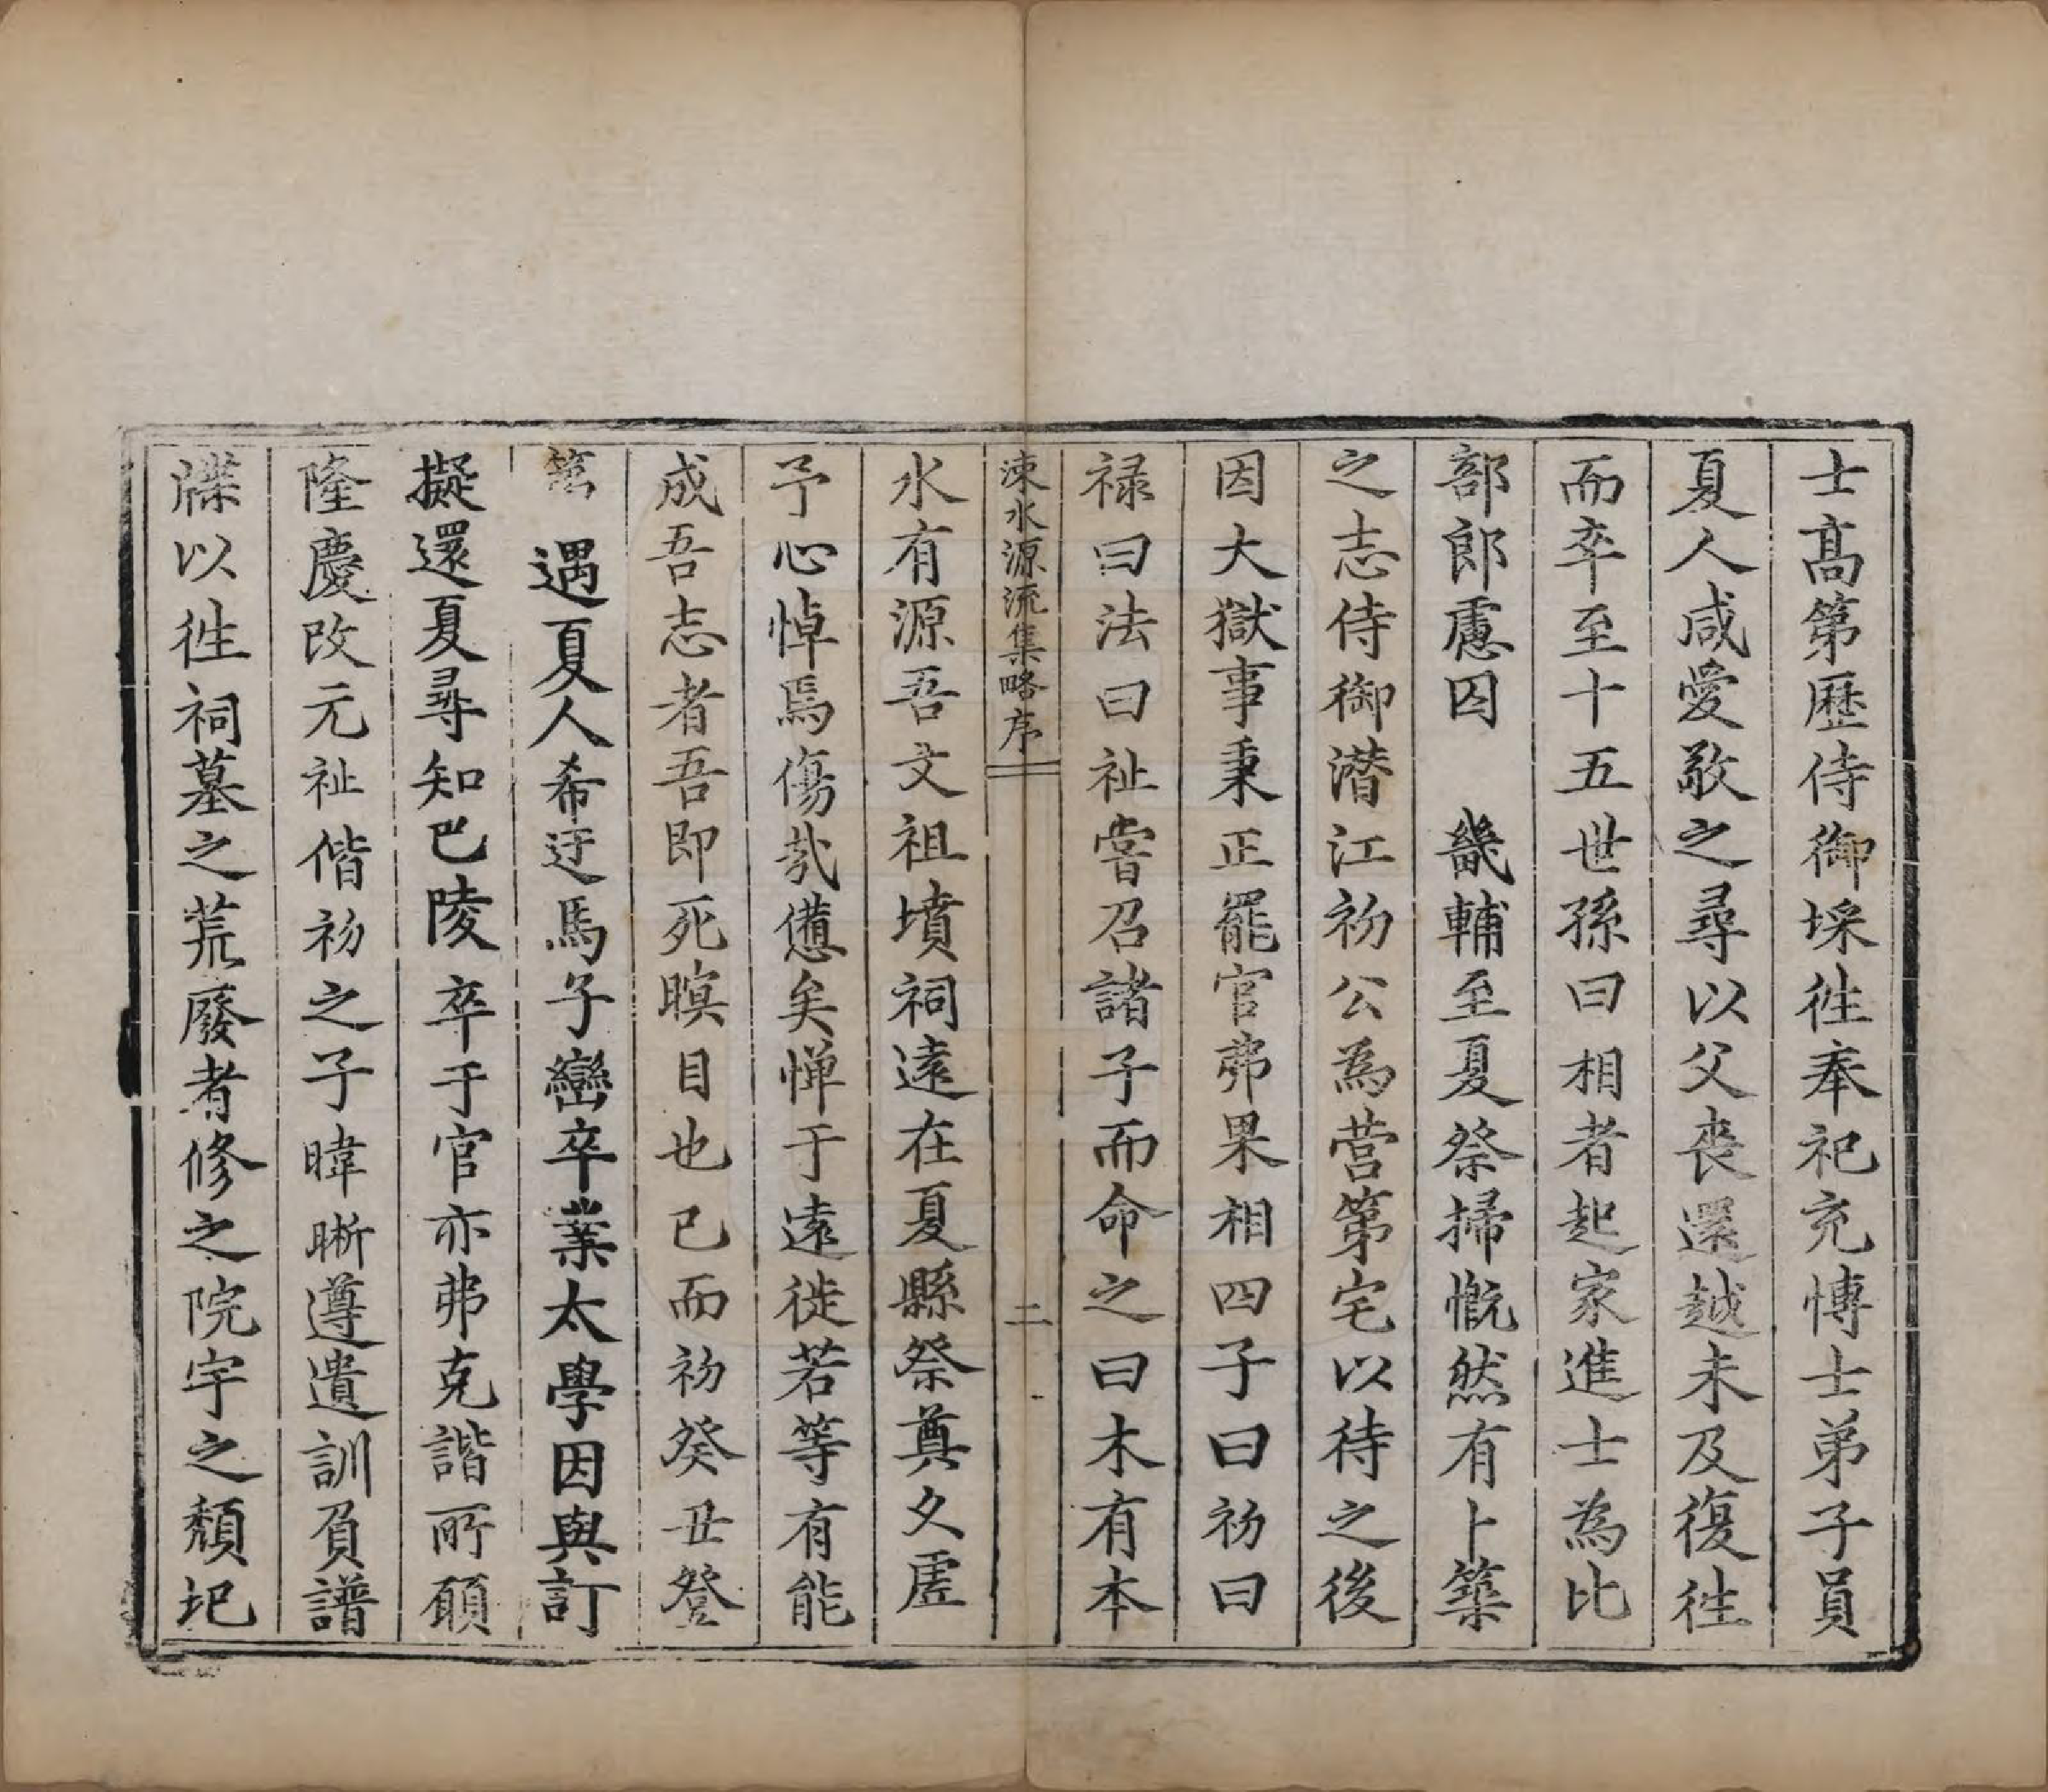 士高第歷侍御埰徃奉祀充博士弟子員
夏人咸愛敬之尋以父喪還越未及復徃
而卒至十五世孫曰相者起家進士為比
部郎慮囚　畿輔至夏祭掃慨然有卜築
之志侍御潜江初公為营第宅以待之後
因大獄事秉正罷官弗果相四子曰初曰
禄曰法曰祉嘗召諸子而命之曰木有本
涑水源流集略序
二
水有源吾文祖墳祠遠在夏縣祭奠久虗
予心悼焉傷哉憊矣惮于遠徙若等有能
成吾志者吾即死瞑目也已而初癸丑登
第　遇夏人希迂馬子巒卒業太學因與訂
擬還夏尋知巴陵卒于官亦弗克諧所願
隆慶改元祉偕初之子暐晣遵遺訓負譜
牒以徃祠墓之荒廢者修之院宇之頹圯